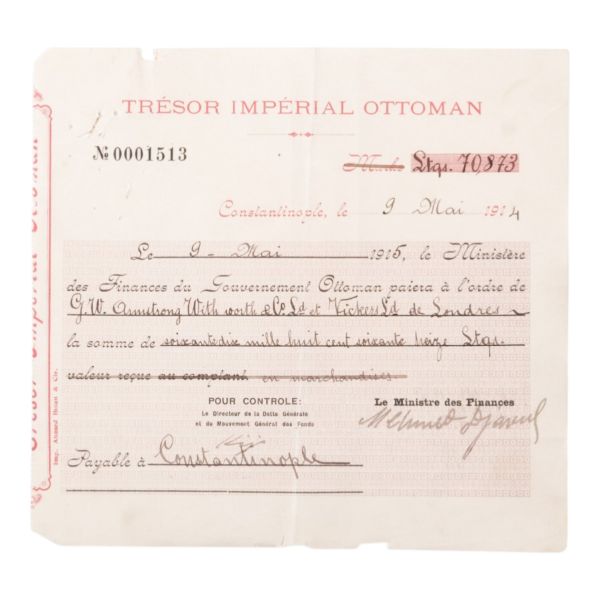 TRÉSOR IMPÉRIAL OTTOMAN
№ 0001513
Marks Ltqs. 70,873
Constantinople, le 9 Mai 1914
Le 9 - Mai 1915, le Ministère
des Finances du Gouvernement Ottoman paiera à l'ordre de
G. W. Armstrong Withworth & Co. Ld et Vickers Ld de Londres
la somme de soixante dix mille huit cent soixante treize Ltqs.
valeur reçue au comptant en marchandises
POUR CONTROLE:
Le Directeur de la Dette Générale
et du Mouvement Général des Fonds
Le Ministre des Finances
Mehmed Djavid
Payable à Constantinople
Trésor Impérial Ottoman
Imp. Ahmed Ihsan & Co.